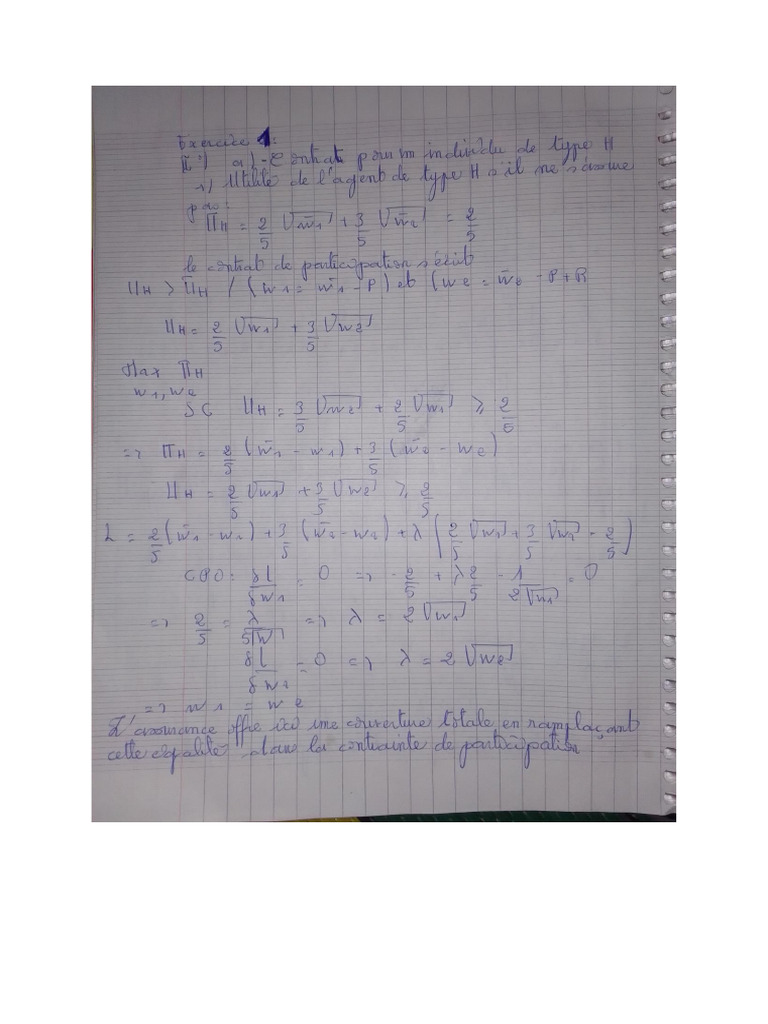 Exercice 1:
II°) a) - Contrat pour un individu de type H
1) Utilité de l'agent de type H s'il ne s'assure
pas:
Π_H = 2/5 √w̄1 + 3/5 √w̄2 = 2/5
le contrat de participation s'écrit
U_H > Ū_H / (w1 = w̄1 - P) et (w2 = w̄2 - P + R
U_H = 2/5 √w1 + 3/5 √w2
Max Π_H
w1, w2
SC U_H = 3/5 √w2 + 2/5 √w1 ≥ 2/5
=> Π_H = 2/5 (w̄1 - w1) + 3/5 (w̄2 - w2)
U_H = 2/5 √w1 + 3/5 √w2 ≥ 2/5
L = 2/5 (w̄1 - w1) + 3/5 (w̄2 - w2) + λ (2/5 √w1 + 3/5 √w2 - 2/5)
CPO: δL/δw1 = 0 => - 2/5 + λ 2/5 - 1/2√w1 = 0
=> 2/5 = λ/5√w => λ = 2√w1
δL/δw2 = 0 => λ = 2√w2
=> w1 = w2
L'assurance offre ici une couverture totale en remplaçant
cette égalité dans la contrainte de participation